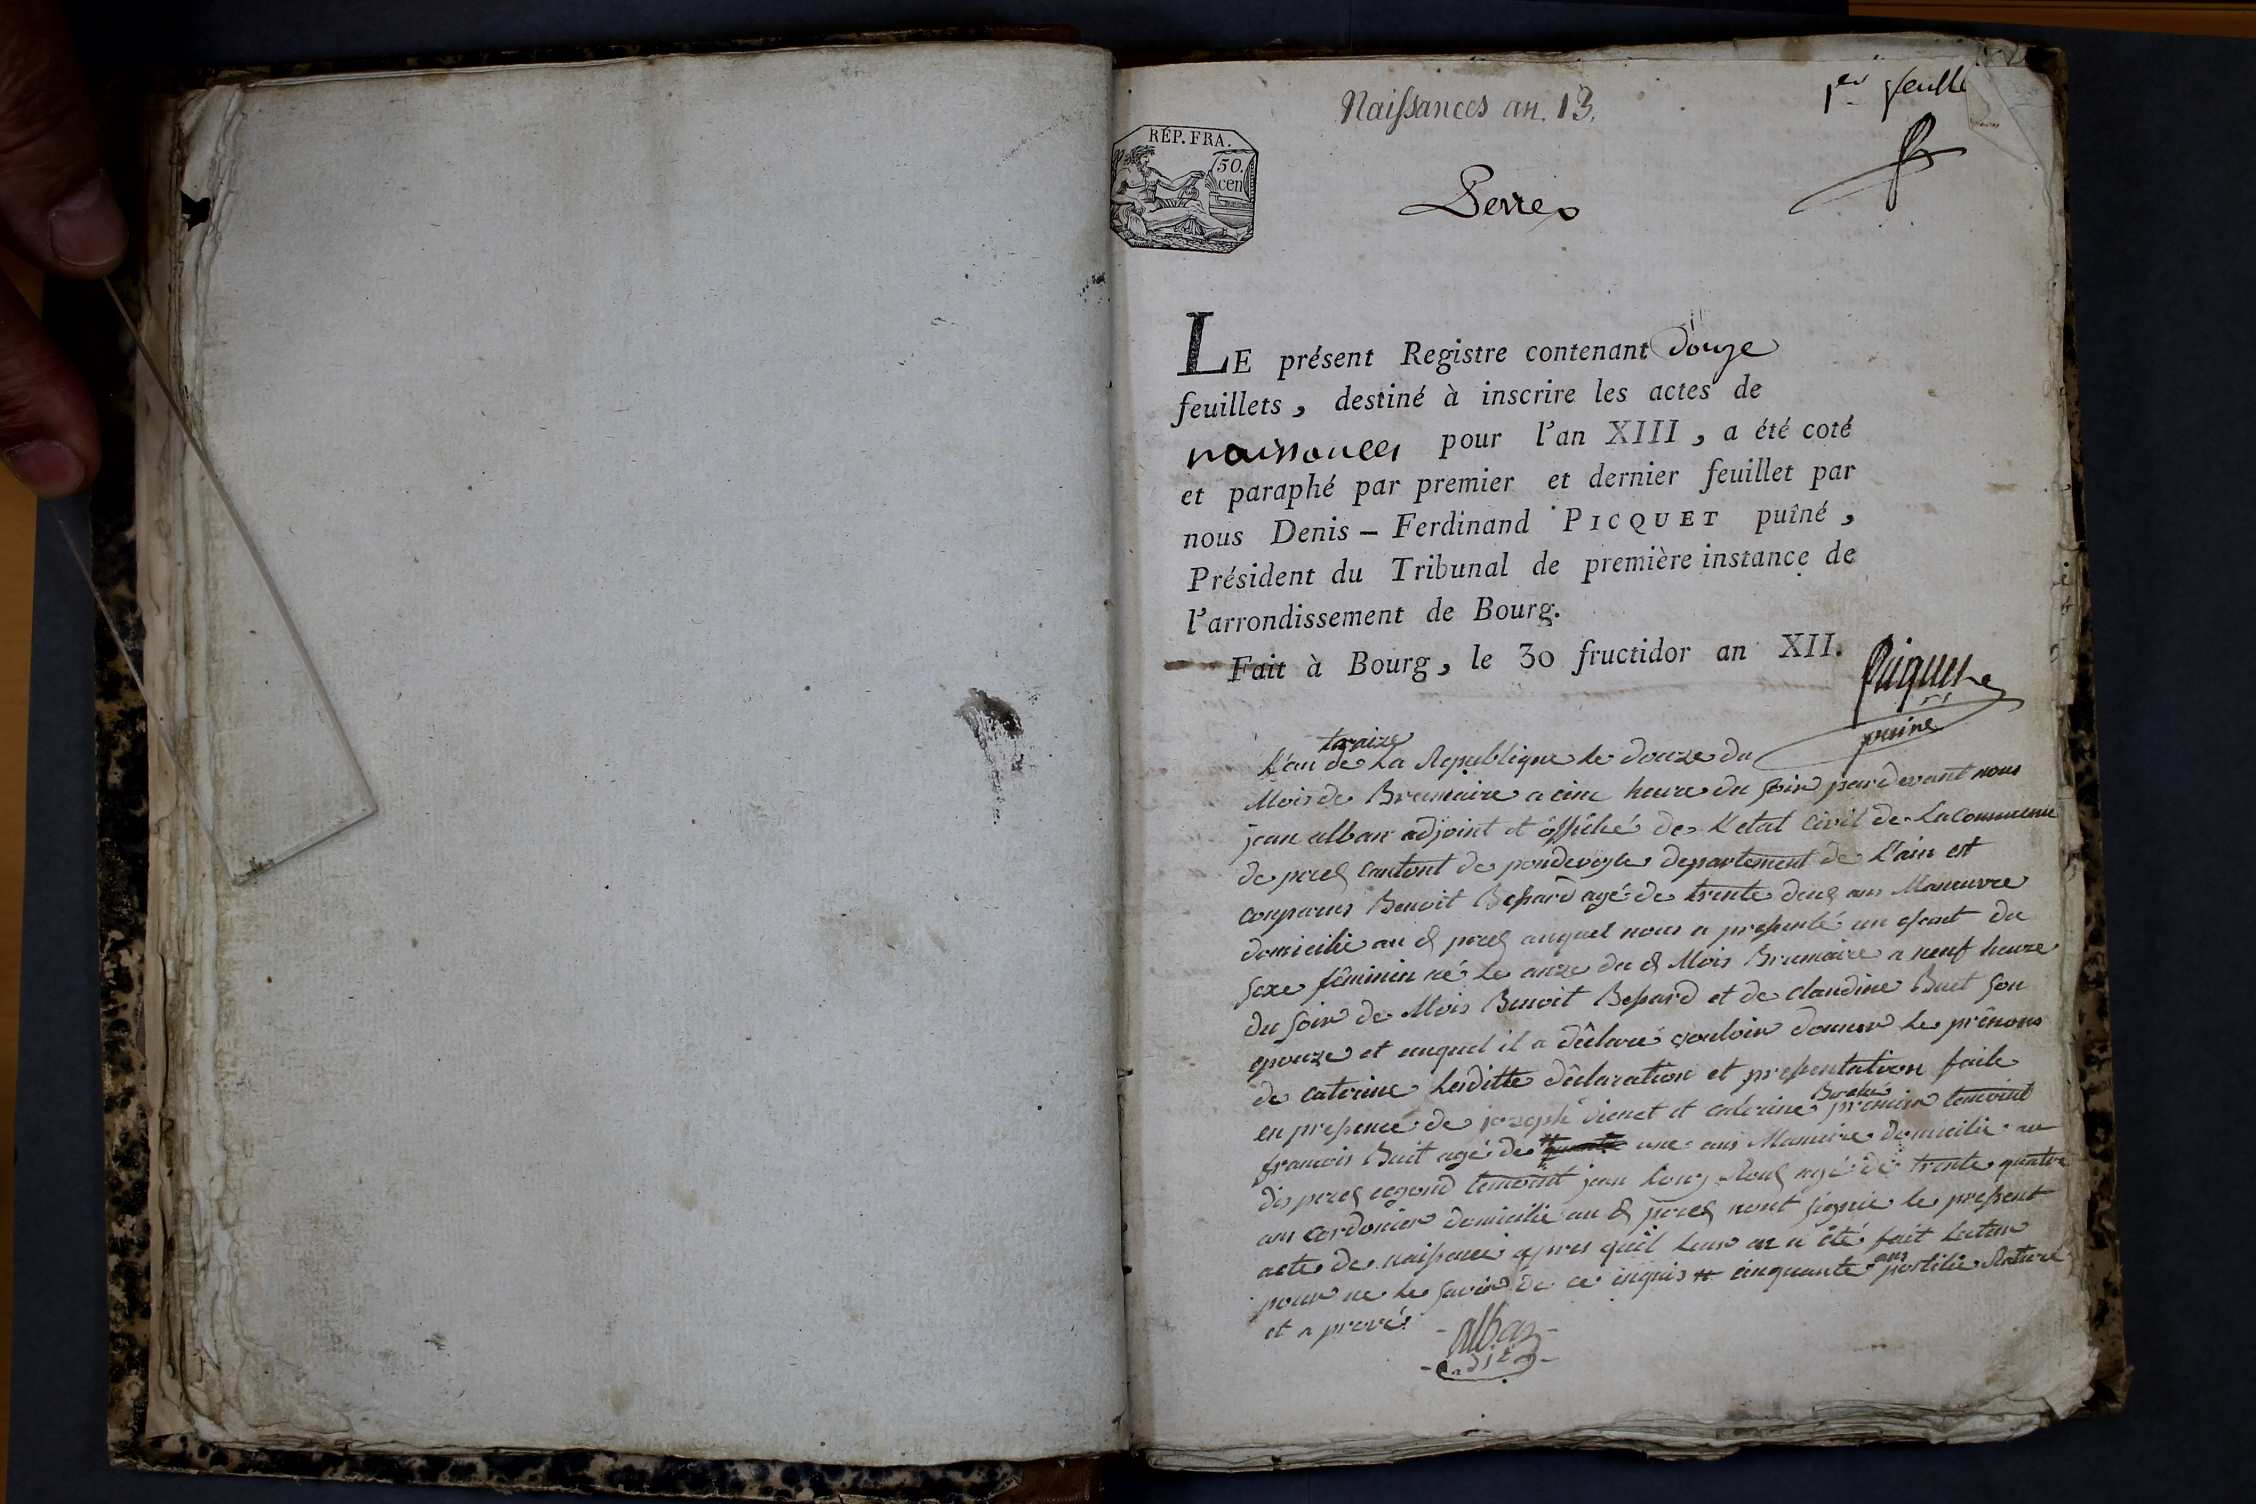 Naissances an. 13.
1er feuille
RÉP. FRA.
50.
cen
Perrex
LE présent Registre contenant douze
feuillets, destiné à inscrire les actes de
naissances pour l'an XIII, a été coté
et paraphé par premier et dernier feuillet par
nous Denis – Ferdinand PICQUET puîné,
Président du Tribunal de première instance de
l'arrondissement de Bourg.
Fait à Bourg, le 30 fructidor an XII.
Picquet
puiné
traize
L'an de La Republique le douze du
Mois de Brumaire a cinc heure du soir pardevant nous
jean alban adjoint et officié de L'etat Civil de La commune
de perex Cantont de pondeveyle departement de L'ain est
conparus Benoit Bessard agé de trente deux ans Maneuvre
domicilie au d perex auquel nous a presenté un efant du
sexe féminin né le onze du d Mois Brumaire a neuf heure
du soir de Mois Benoit Bessard et de claudine Buit son
epouze et auquel il a déclaré vouloir donner le prénons
de caterine lesditte déclaration et presentation faite
en presence de joseph vienet et caterine premier temoint
francois Buit agé de une ans Manuvre domicilie au
dis perex cegond temoint jean agé de trente quatre
ans cordonier domicilie au d perex nont signie le present
acte de naissence apres quil leur an a été fait lecture
pour ne le savoir de ce inquis # cinquante ans
et a prové
alban
adjt